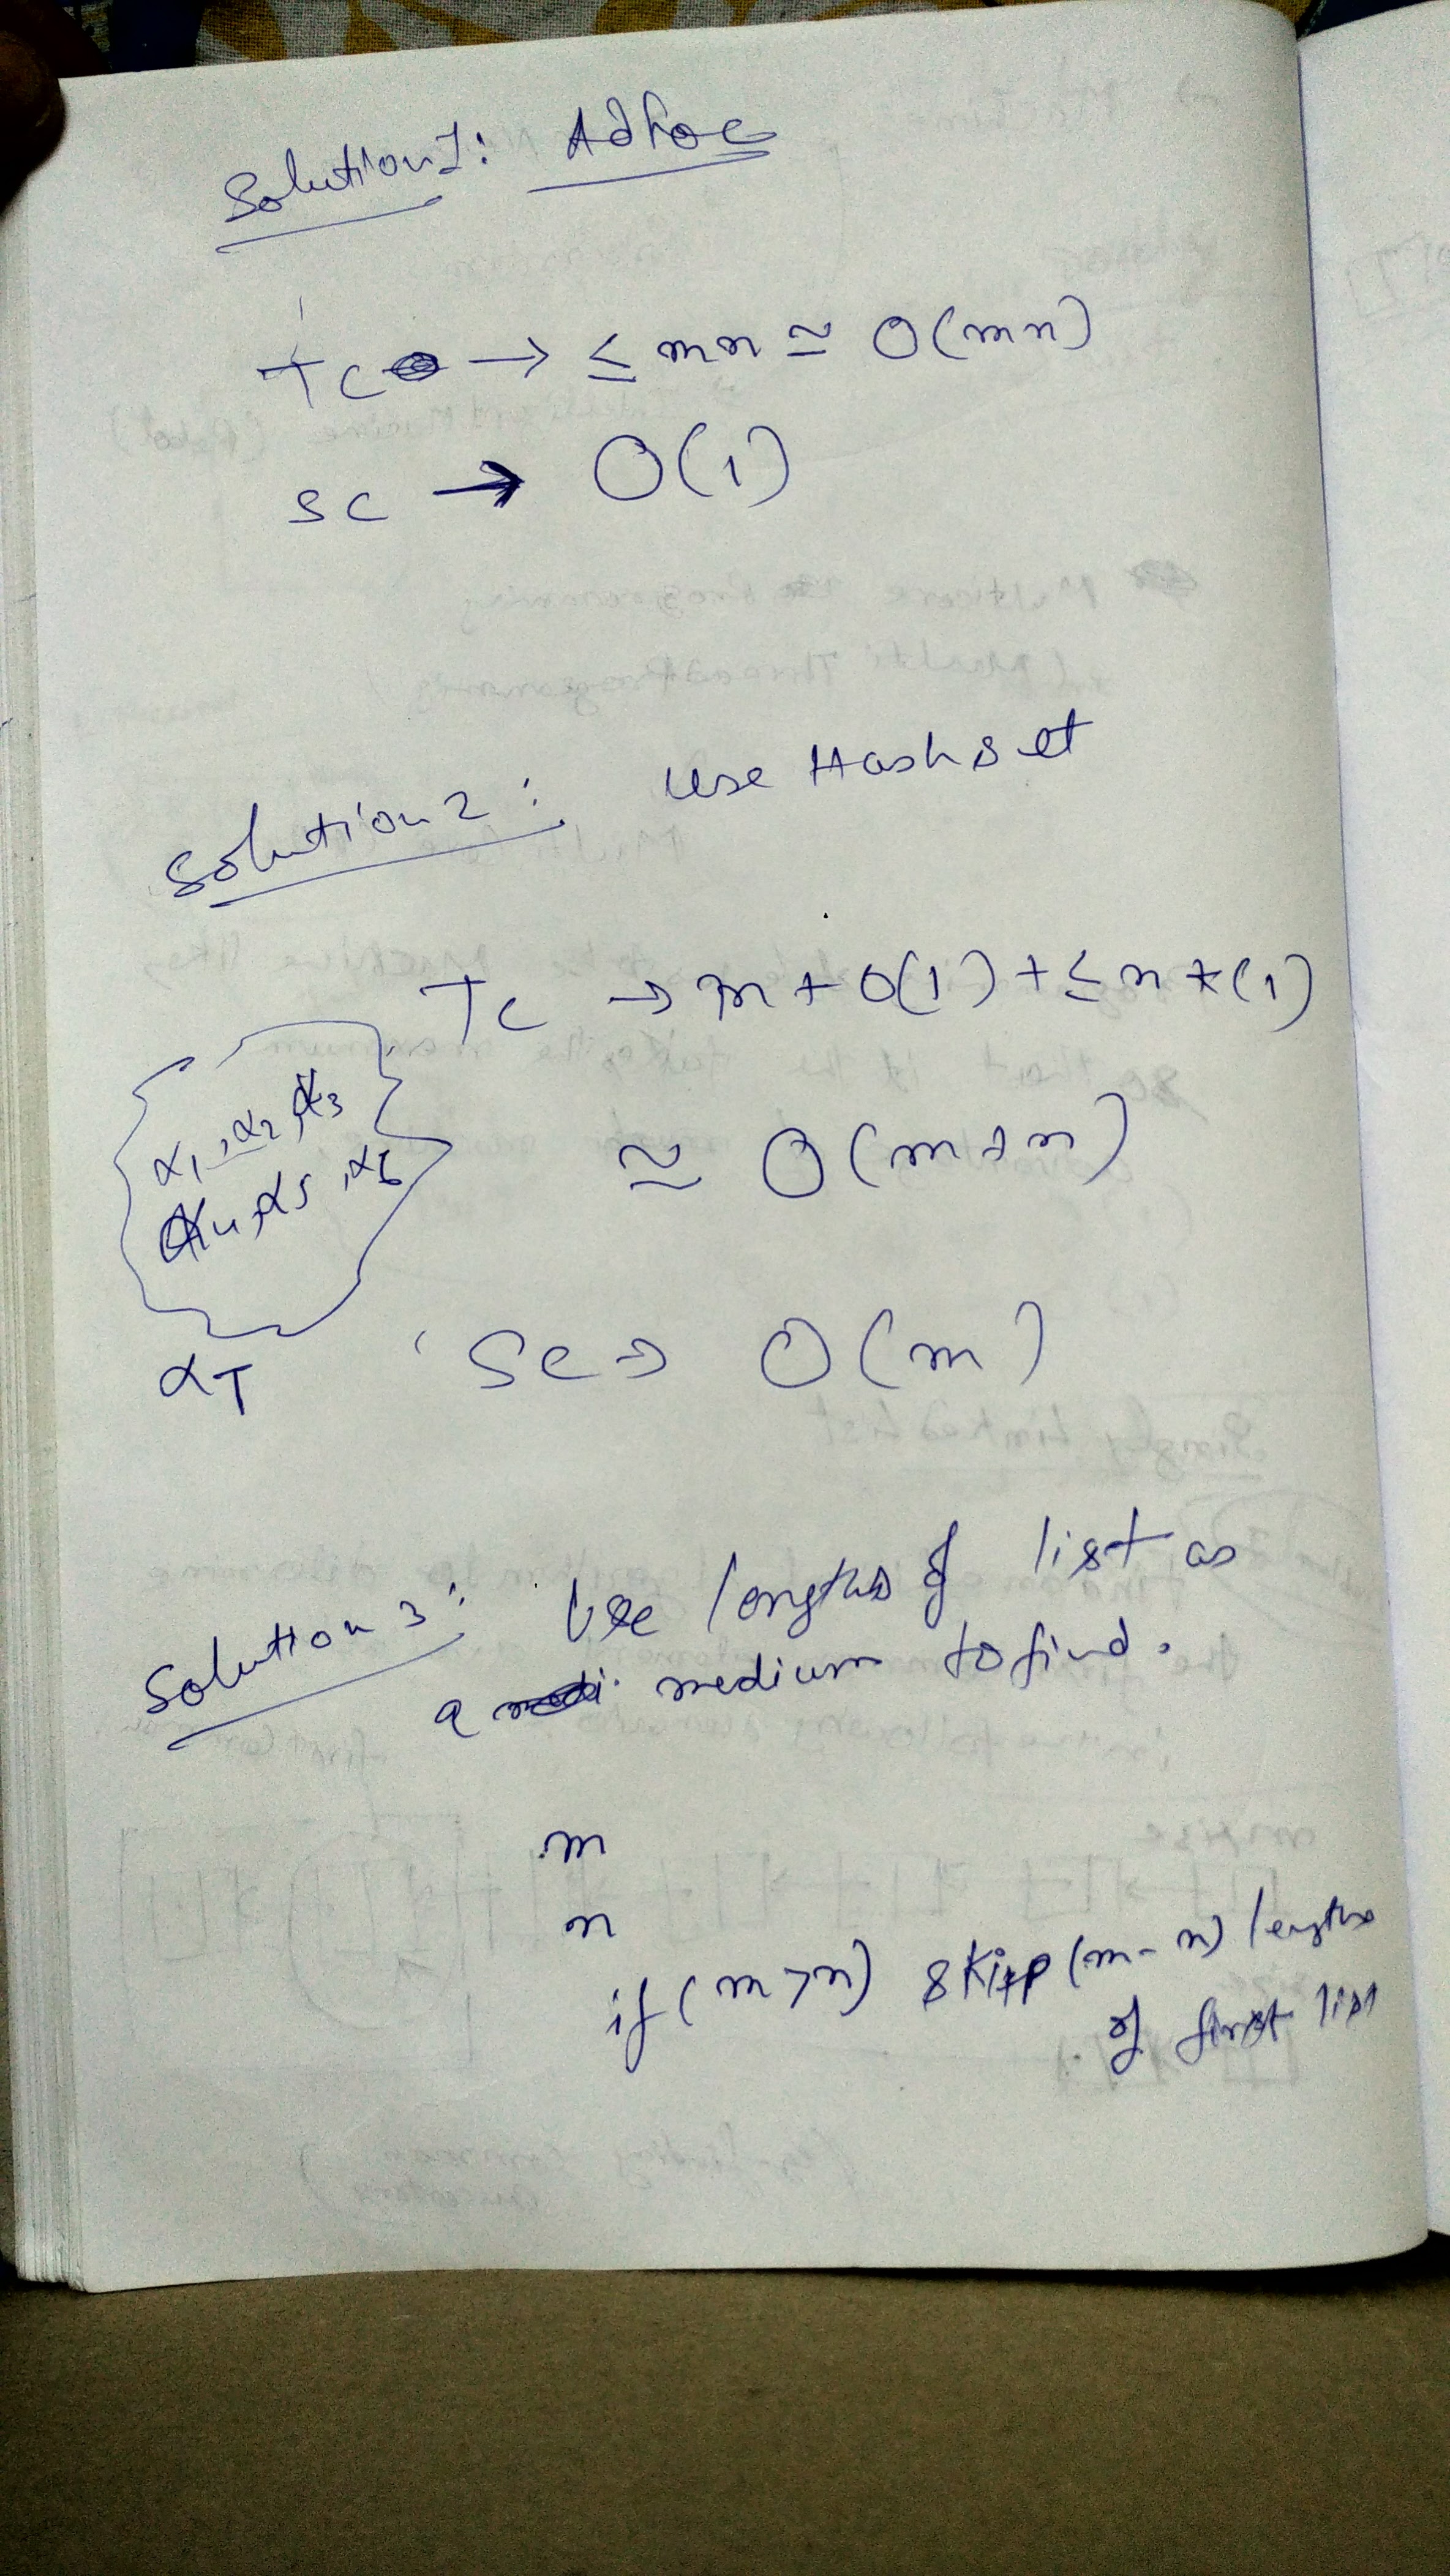 Solution 1: Adhoc
TC → ≤ mn ≃ O(mn)
SC → O(1)
Solution 2: Use Hashset
TC → m + O(1) + ≤ n * (1)
≃ O(m+n)
α1, α2, α3
α4, α5, α6
αT
SC → O(m)
Solution 3: Use lengths of list as
a medium to find.
m
n
if (m > n) skip (m - n) lengths
of first list